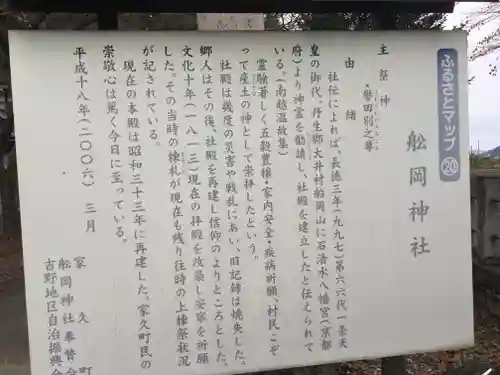 ふるさとマップ⑳
舩岡神社
主祭神
・譽田別之尊
由緒
社伝によれば、長徳三年(九九七)第六六代一条天
皇の御代、丹生郡大井村舩岡山に石清水八幡宮(京都
府)より神霊を勧請し、社殿を建立したと伝えられて
いる。(南越温故集)
霊験著しく五穀豊穣・家内安全・疾病祈願、村民こぞ
って産土の神として崇拝したという。
社殿は幾度の災害や戦乱にあい、旧記録は焼失した。
郷人はその後、社殿を再建し信仰のよりどころとした。
文化十年(一八一三)現在の拝殿を改築し安寧を祈願
した。その当時の棟札が現在も残り往時の上棟祭状況
が記されている。
現在の本殿は昭和三十三年に再建した。家久町民の
崇敬心は篤く今日に至っている。
平成十八年(二〇〇六)三月
家久町
舩岡神社奉賛会
吉野地区自治振興会